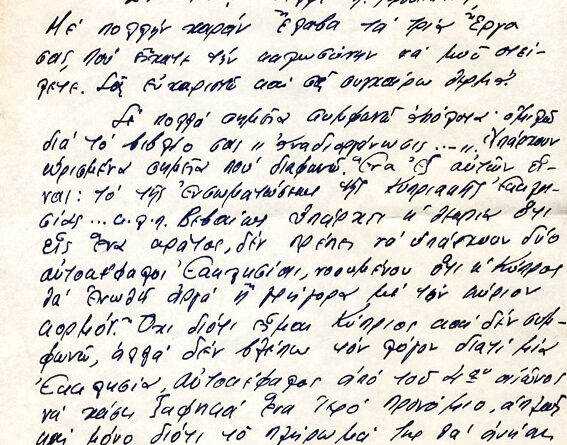 Μέ πολλήν χαράν ἔλαβα τά τρία ἔργα
σας, πού εἴχατε τήν καλωσύνην νά μοῦ στεί-
λετε. Σᾶς εὐχαριστῶ καί σᾶς συγχαίρω θερμά!
Σέ πολλά σημεῖα συμφωνῶ ἀπόλυτα. ὁμιλῶ
διά τό βιβλίο σας "Ἀναδιοργάνωσις...". Ὑπάρχουν
ὡρισμένα σημεῖα πού διαφωνῶ. Ἕνα ἐξ αὐτῶν εἶ-
ναι: τό τῆς ἐνσωματώσεως τῆς Κυπριακῆς Ἐκκλη-
σίας... κ.λ.π. Βεβαίως ὑπάρχει ἡ θεωρία ὅτι
εἰς ἕνα κράτος, δέν πρέπει νά ὑπάρχουν δύο
αὐτοκέφαλοι Ἐκκλησίαι, νοουμένου ὅτι ἡ Κύπρος
θά ἑνωθῆ ἀργά ἤ γρήγορα μέ τόν κύριον
κορμόν. Ὄχι διότι εἶμαι Κύπριος καί δέν συμ-
φωνῶ, ἀλλά δέν βλέπω τόν λόγον διατί μία
Ἐκκλησία, αὐτοκέφαλος ἀπό τοῦ 4ου αἰῶνος
νά χάση ξαφνικά ἕνα ἱερό προνόμιο, ἁπλῶς
καί μόνο διότι τό πλήρωμά της θά ἀνήκη